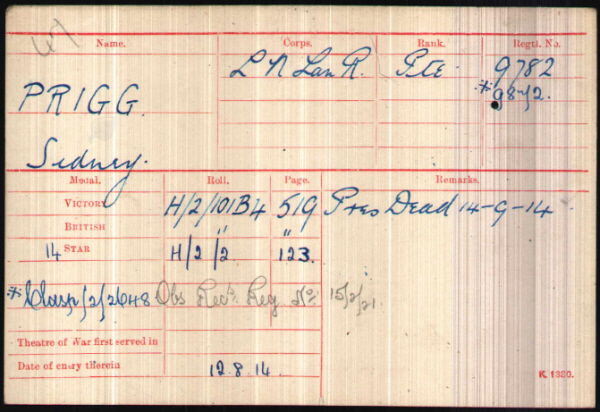 67
Name. Corps. Rank. Regtl. No.
L N Lan R. Pte. 9782
PRIGG. *9872.
Sidney.
Medal. Roll. Page. Remarks.
VICTORY H/2/101B4 519 Pres Dead 14-9-14
BRITISH " "
14 STAR H/2/2 123.
*Clasp/2/2648 Obs Recds Reg No: 15/2/21
Theatre of War first served in
Date of entry therein 12.8.14.
K. 1380.